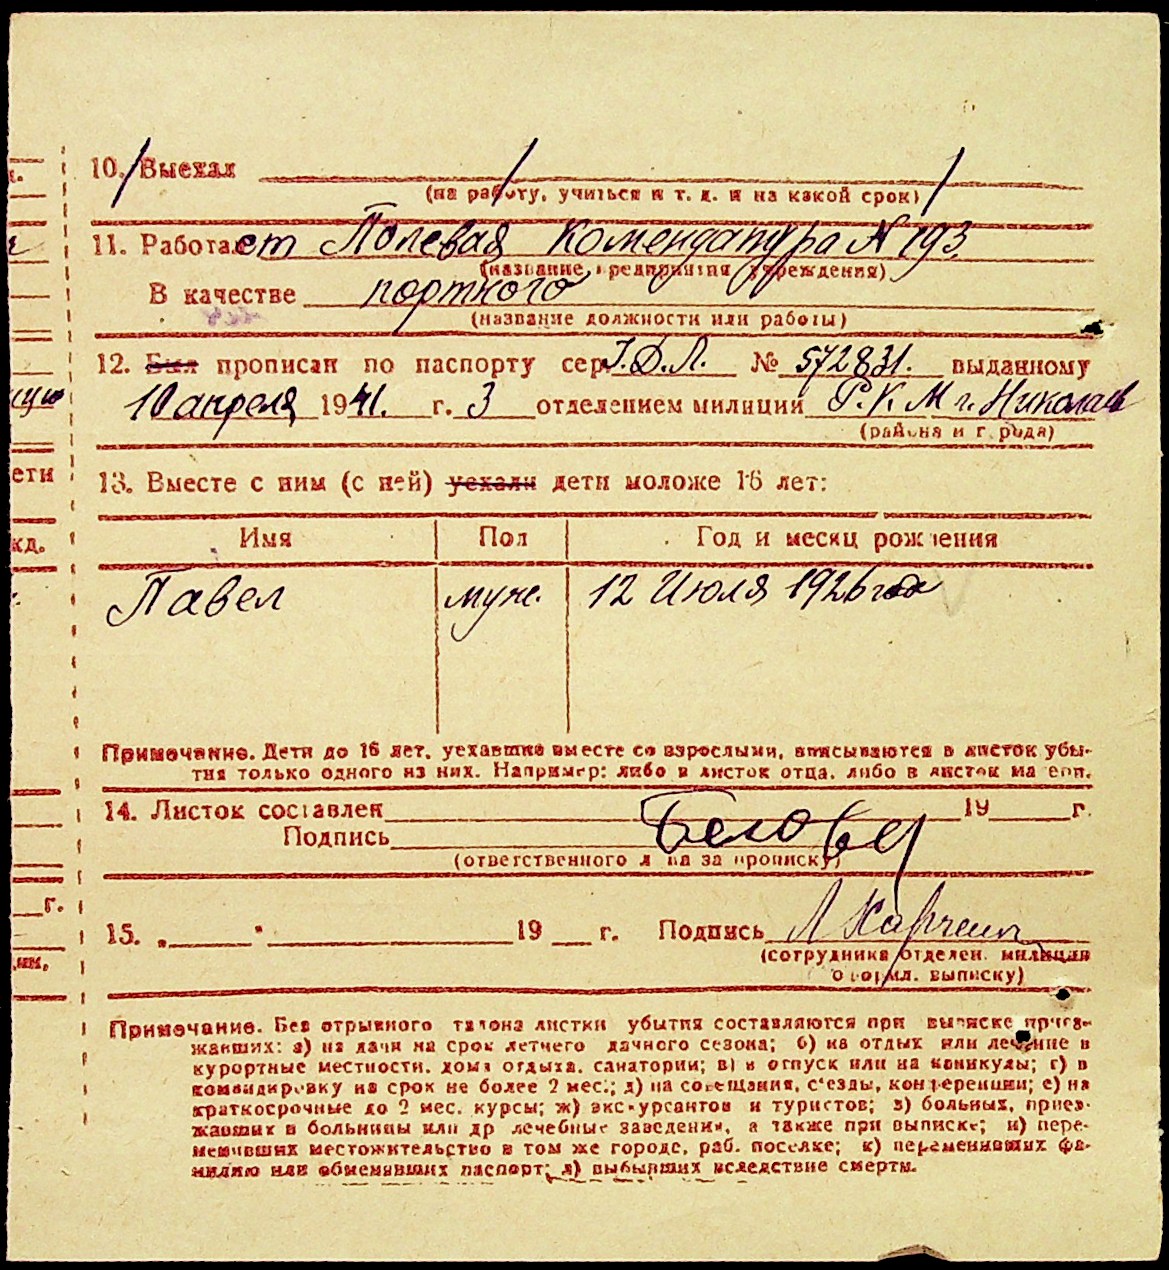 10. Выехал
(на работу, учиться и т. д. и на какой срок)
11. Работает Полевая Комендатура № 193.
(название предприятия учреждения)
В качестве портного
(название должности или работы)
12. Был прописан по паспорту сер. I.Д.Л. № 572831. выданному
10 апреля 1941. г. 3 отделением милиции Р.К.М г. Николаев
(района и города)
13. Вместе с ним (с ней) уехали дети моложе 16 лет:
Имя Пол Год и месяц рождения
Павел муж. 12 Июля 1926 года
Примечание. Дети до 16 лет, уехавшие вместе со взрослыми, вписываются в листок убы-
тия только одного из них. Например: либо в листок отца, либо в листок матери.
14. Листок составлен 19 г.
Подпись
(ответственного лица за прописку)
15. „ " 19 г. Подпись
(сотрудника отделен. милиции
оформл. выписку)
Примечание. Без отрывного талона листки убытия составляются при выписке приез-
жавших: а) на дачи на срок летнего дачного сезона; б) на отдых или лечение в
курортные местности, дома отдыха, санатории; в) в отпуск или на каникулы; г) в
командировку на срок не более 2 мес.; д) на совещания, с'езды, конференции; е) на
краткосрочные до 2 мес. курсы; ж) экскурсантов и туристов; з) больных, приез-
жавших в больницы или др лечебные заведения, а также при выписке; и) пере-
менивших местожительство в том же городе, раб. поселке; к) переменивших фа-
милию или обменявших паспорт; л) выбывших вследствие смерти.
г.
ети
жд.